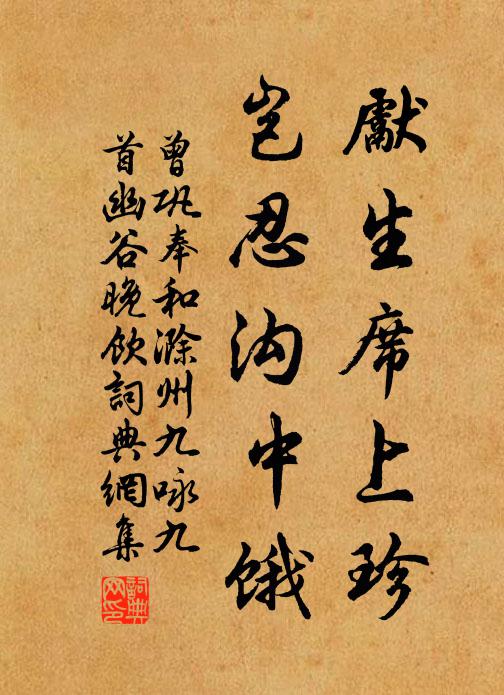 獻生席上珍
豈忍沟中餓
曾巩奉和滁州九咏九
首幽谷晚飲詞典網集